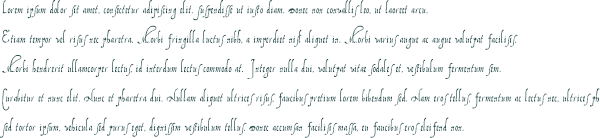 Lorem ipsum dolor sit amet, consectetur adipiscing elit. Suspendisse ut iusto diam. Donec non convallis leo, ut laoreet arcu.
Etiam tempor vel risus nec pharetra. Morbi fringilla luctus nibh, a imperdiet nisl aliquet in. Morbi varius augue ac augue volutpat facilisis.
Morbi hendrerit ullamcorper lectus, id interdum lectus commodo at. Integer nulla dui, volutpat vitae sodales et, vestibulum fermentum sem.
Curabitur et nunc elit. Nunc et pharetra dui. Nullam aliquet ultrices risus, faucibus pretium lorem bibendum sed. Nam eros tellus, fermentum ac lectus nec, ultrices ph
sed tortor ipsum, vehicula sed purus eget, dignissim vestibulum tellus. Donec accumsan facilisis massa, eu faucibus eros eleifend non.